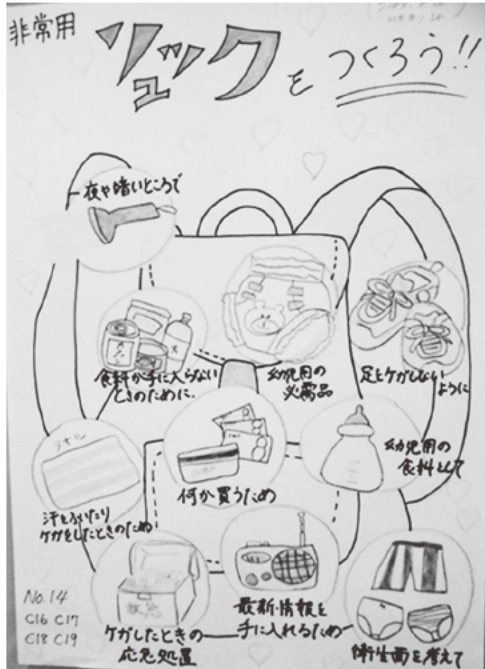 非常用
リュックをつくろう!!
夜や暗いところで
食料が手に入らない
ときのために.
幼児用の
必需品
足をケガしない
ように
タオル
汗をふいたり
ケガをしたときのため
何か買うため
幼児用の
食料として
ケガしたときの
応急処置
最新情報を
手に入れるため
衛生面を考えて
No.14
C16 C17
C18 C19